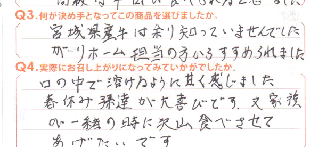 Q3.何が決め手となってこの商品を選びましたか。
宮城県産牛は余り知っていませんでした
が リホーム担当の方からすすめられました
Q4.実際にお召し上がりになってみていかがでしたか。
口の中で溶けるように甘く感じました
春休み孫達が大喜びです 又家族
が一緒の時に沢山食べさせて
あげたいです